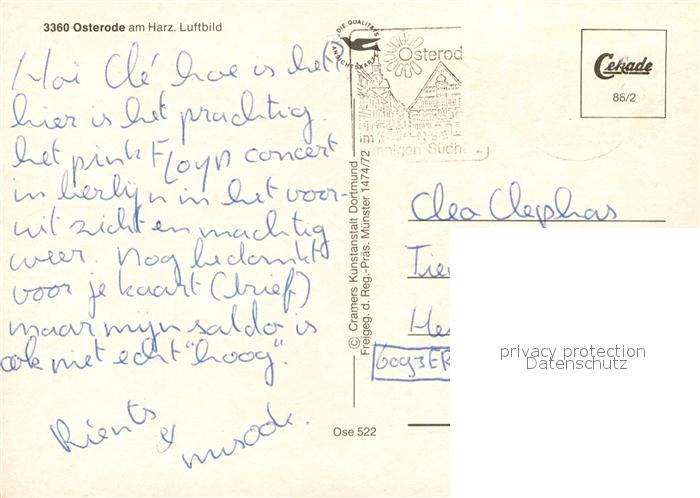 3360 Osterode am Harz. Luftbild
Hoi Clé hoe is het?
hier is het prachtig.
het pink Floyd concert
in berlijn in het voor-
uit zicht en machtig
weer. Nog bedankt
voor je kaart (brief)
maar mijn saldo is
ook niet echt "hoog".
Rients
&
DIE QUALITÄTS
ANSICHTSKARTE
Osterod
im
Südha
© Cramers Kunstanstalt Dortmund
Freigeg. d. Reg.-Präs. Münster 1474/72
Ose 522
Cekade
88/2
Cleo Clephas
6093ER
privacy protection
Datenschutz